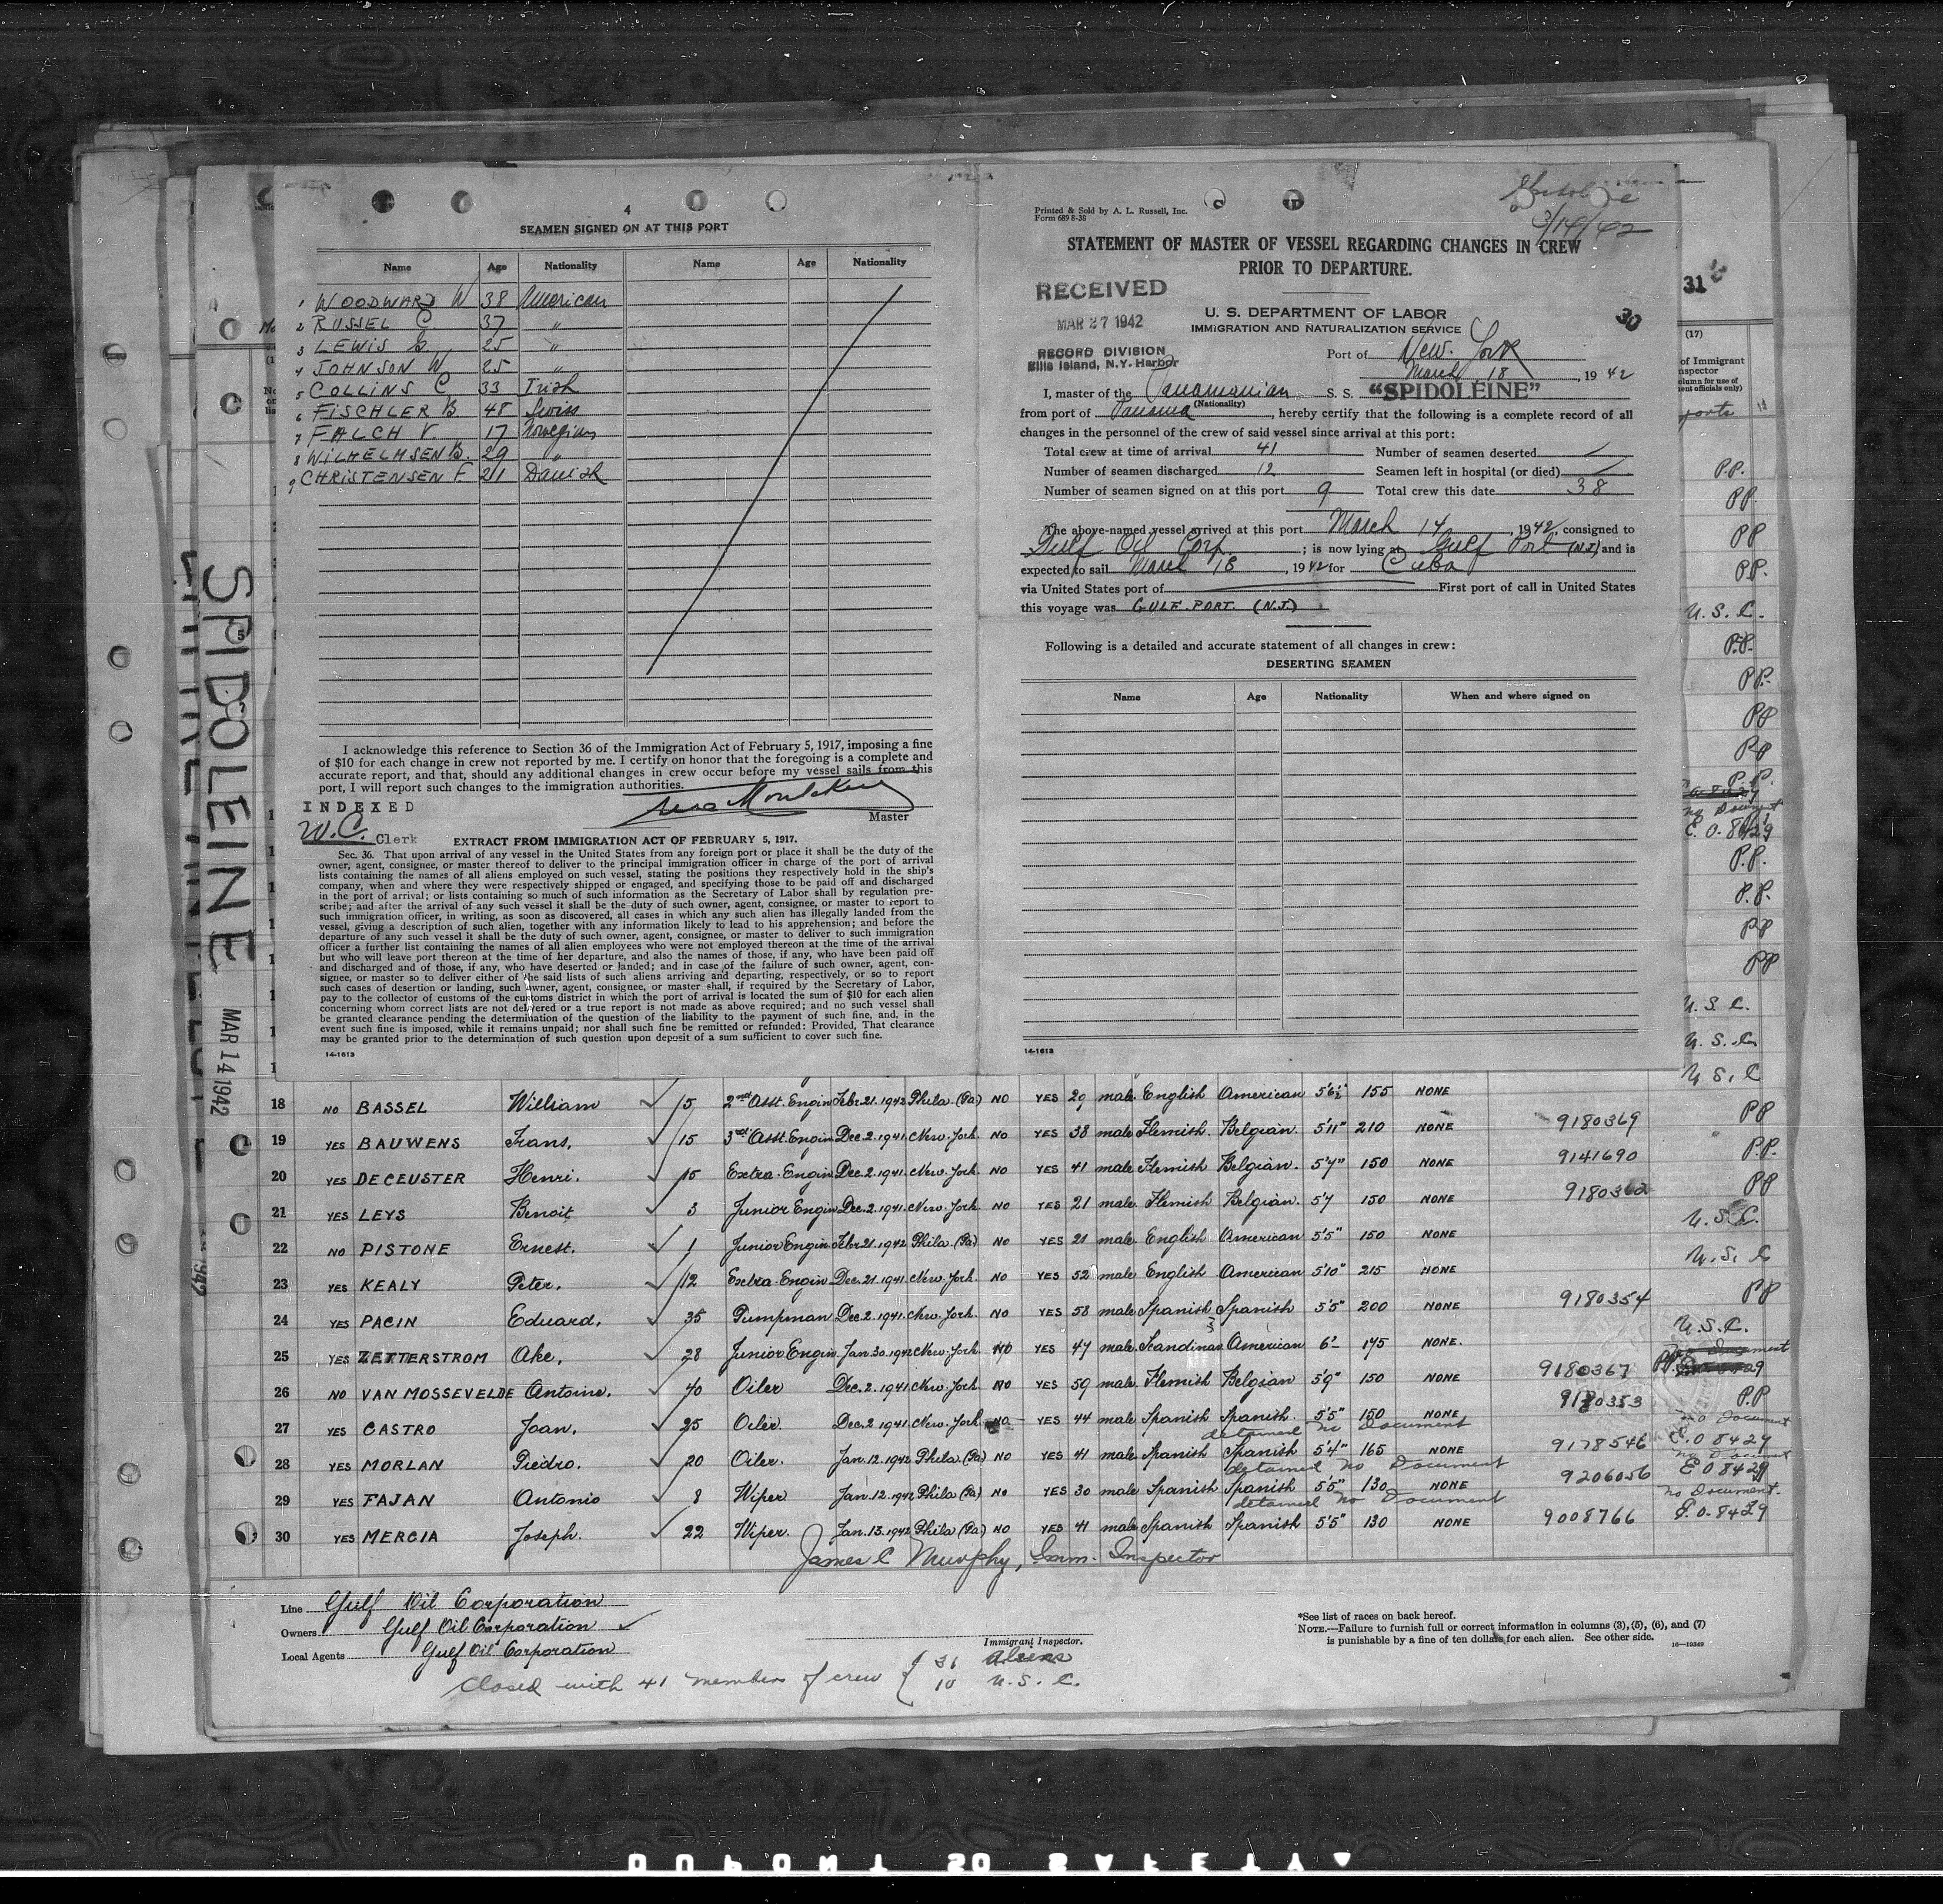 4
SEAMEN SIGNED ON AT THIS PORT
Name Age Nationality Name Age Nationality
1 WOODWARD W 38 American
2 RUSSEL G 37 "
3 LEWIS G. 25 "
4 JOHNSON W 25 "
5 COLLINS C 33 Irish
6 FISCHLER B 48 Swiss
7 FALCH V. 17 Norwegian
8 WILHELMSEN B. 29 "
9 CHRISTENSEN F 21 Danish
I acknowledge this reference to Section 36 of the Immigration Act of February 5, 1917, imposing a fine
of $10 for each change in crew not reported by me. I certify on honor that the foregoing is a complete and
accurate report, and that, should any additional changes in crew occur before my vessel sails from this
port, I will report such changes to the immigration authorities.
INDEXED
Master
W.C. Clerk
EXTRACT FROM IMMIGRATION ACT OF FEBRUARY 5, 1917.
Sec. 36. That upon arrival of any vessel in the United States from any foreign port or place it shall be the duty of the
owner, agent, consignee, or master thereof to deliver to the principal immigration officer in charge of the port of arrival
lists containing the names of all aliens employed on such vessel, stating the positions they respectively hold in the ship's
company, when and where they were respectively shipped or engaged, and specifying those to be paid off and discharged
in the port of arrival; or lists containing so much of such information as the Secretary of Labor shall by regulation pre-
scribe; and after the arrival of any such vessel it shall be the duty of such owner, agent, consignee, or master to report to
such immigration officer, in writing, as soon as discovered, all cases in which any such alien has illegally landed from the
vessel, giving a description of such alien, together with any information likely to lead to his apprehension; and before the
departure of any such vessel it shall be the duty of such owner, agent, consignee, or master to deliver to such immigration
officer a further list containing the names of all alien employees who were not employed thereon at the time of the arrival
but who will leave port thereon at the time of her departure, and also the names of those, if any, who have been paid off
and discharged and of those, if any, who have deserted or landed; and in case of the failure of such owner, agent, con-
signee, or master so to deliver either of the said lists of such aliens arriving and departing, respectively, or so to report
such cases of desertion or landing, such owner, agent, consignee, or master shall, if required by the Secretary of Labor,
pay to the collector of customs of the customs district in which the port of arrival is located the sum of $10 for each alien
concerning whom correct lists are not delivered or a true report is not made as above required; and no such vessel shall
be granted clearance pending the determination of the question of the liability to the payment of such fine, and, in the
event such fine is imposed, while it remains unpaid; nor shall such fine be remitted or refunded: Provided, That clearance
may be granted prior to the determination of such question upon deposit of a sum sufficient to cover such fine.
14-1613
Printed & Sold by A. L. Russell, Inc.
Form 689 8-38
3/14/42
STATEMENT OF MASTER OF VESSEL REGARDING CHANGES IN CREW
PRIOR TO DEPARTURE.
RECEIVED
MAR 27 1942
RECORD DIVISION
Ellis Island, N.Y. Harbor
U. S. DEPARTMENT OF LABOR
IMMIGRATION AND NATURALIZATION SERVICE
30
Port of New York
March 18, 1942
I, master of the Panamanian S. S. "SPIDOLEINE"
(Nationality)
from port of Panama, hereby certify that the following is a complete record of all
changes in the personnel of the crew of said vessel since arrival at this port:
Total crew at time of arrival 41 Number of seamen deserted
Number of seamen discharged 12 Seamen left in hospital (or died)
Number of seamen signed on at this port 9 Total crew this date 38
The above-named vessel arrived at this port March 14, 1942, consigned to
Gulf Oil Corp.; is now lying at Gulf Port (N.J) and is
expected to sail March 18, 1942 for Cuba
via United States port of First port of call in United States
this voyage was GULF-PORT. (N.J.)
Following is a detailed and accurate statement of all changes in crew:
DESERTING SEAMEN
Name Age Nationality When and where signed on
14-1613
SPIDOLEINE
MAR 14 1942
31
(17)
of Immigrant
P.P.
PP
PP
PP.
U.S.C.
P.P.
PP.
PP
PP
P.P.
no Document
E.O. 8429
P.P.
P.P.
PP
PP
U.S.C.
U.S.C
U.S.C
18 NO BASSEL William 5 2nd Asst. Engin Febr. 21. 1942 Phila (Pa) NO YES 29 male English American 5'6½" 155 NONE
19 YES BAUWENS Frans, 15 3rd Asst. Engin Dec. 2. 1941. New. York. NO YES 38 male Flemish. Belgian. 5'11" 210 NONE 9180369 PP
20 YES DE CEUSTER Henri. 15 Extra. Engin Dec. 2. 1941. New. York NO YES 41 male Flemish Belgian. 5'7" 150 NONE 9141690 P.P.
21 YES LEYS Benoit 3 Junior Engin Dec. 2. 1941. New. York NO YES 21 male. Flemish Belgian. 5'7 150 NONE 9180362 PP
22 NO PISTONE Ernest. 1 Junior Engin Febr. 21. 1942 Phila. (Pa) NO YES 21 male. English American 5'5" 150 NONE U.S.C.
23 YES KEALY Peter. 12 Extra. Engin Dec. 21. 1941. New York. NO YES 52 male English American 5'10" 215 NONE U.S.C
24 YES PACIN Eduard. 35 Pumpman Dec. 2. 1941. New. York. NO YES 58 male Spanish Spanish 5'5" 200 NONE 9180354 PP
25 YES ZETTERSTROM Ake, 28 Junior Engin. Jan. 30. 1942 New. York NO YES 47 male. Scandinav American 6'- 175 NONE. U.S.C.
26 NO VAN MOSSEVELDE Antoine. 40 Oiler Dec. 2. 1941. New. York NO YES 59 male. Flemish Belgian 5'9" 150 NONE 9180367 PP.
27 YES CASTRO Joan. 25 Oiler. Dec. 2 1941. New. York NO YES 44 male Spanish Spanish. 5'5" 150 NONE 9180353 P.P
detained no Document no Document
28 YES MORLAN Piedro. 20 Oiler. Jan. 12. 1942 Phila (Pa) NO YES 41 male Spanish Spanish 5'4" 165 NONE 9178546 E.O 8429
detained no Document no Document
29 YES FAJAN Antonio 8 Wiper Jan. 12. 1942 Phila (Pa) NO YES 30 male Spanish Spanish 5'5" 130 NONE 9206056 E O 8429
detained no Document no Document.
30 YES MERCIA Joseph. 22 Wiper. Jan. 13. 1942 Phila (Pa) NO YES 41 male Spanish Spanish 5'5" 130 NONE 9008766 E.O. 8429
James C Murphy, Imm. Inspector
Line Gulf Oil Corporation
Owners Gulf Oil Corporation
Local Agents Gulf Oil Corporation
Immigrant Inspector.
Closed with 41 members of crew { 31 Aliens
10 U.S.C.
*See list of races on back hereof.
NOTE.—Failure to furnish full or correct information in columns (3), (5), (6), and (7)
is punishable by a fine of ten dollars for each alien. See other side. 16—19349